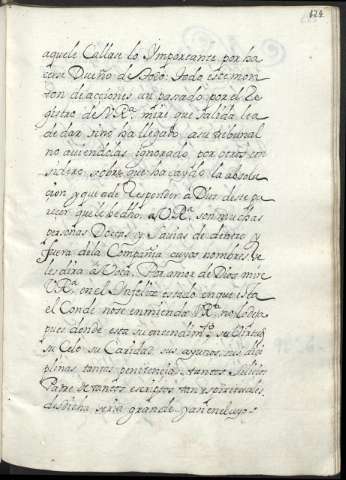 624
aquele Callase lo Importante por ha
cerse Dueño de todo. todo este mon
ton de acciones an pasado por el Re
gistro de V.R.ª mire que salida lea
de dar sino ha llegado a su tribunal
no aviendolas ignorado, por otros con
sidero, sobre que ha caydo la absolu
cion y que a de Responder a Dios de se pa
recer que le pedido a V.R.ª son muchas
personas Doctas y Savias de dentro y
fuera de la Compañia cuyos nombres se
les dira a Voca. Por amor de Dios mire
V.R.ª en el Infeliz estado en que esta
el Conde no se enmienda V.R.ª no lo deja
pues donde esta su entendim.to su Virtud
su Celo su Caridad, sus ayunos, sus disci
plinas tantas penitencias, tantos Silicios
Padre de tantos escriptos tan espirituales,
desdicha seria grande y an en el suyo